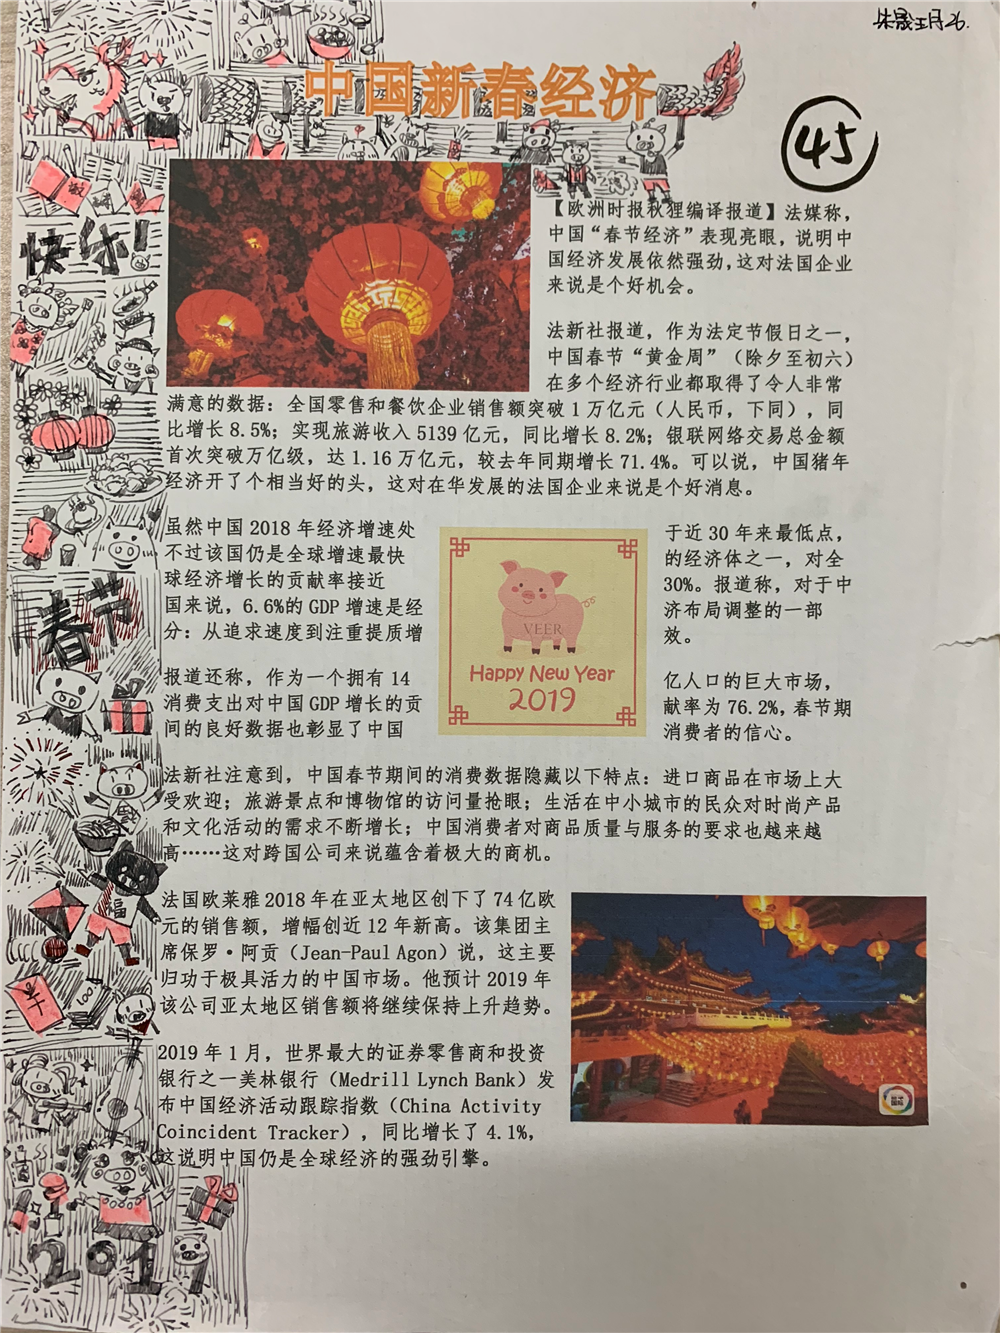 中国新春经济
45
快乐!
春节
福
2019
【欧洲时报秋狸编译报道】法媒称，
中国“春节经济”表现亮眼，说明中
国经济发展依然强劲，这对法国企业
来说是个好机会。
法新社报道，作为法定节假日之一，
中国春节“黄金周”（除夕至初六）
在多个经济行业都取得了令人非常
满意的数据：全国零售和餐饮企业销售额突破1万亿元（人民币，下同），同
比增长8.5%；实现旅游收入5139亿元，同比增长8.2%；银联网络交易总金额
首次突破万亿级，达1.16万亿元，较去年同期增长71.4%。可以说，中国猪年
经济开了个相当好的头，这对在华发展的法国企业来说是个好消息。
虽然中国2018年经济增速处于近30年来最低点，
不过该国仍是全球增速最快的经济体之一，对全
球经济增长的贡献率接近30%。报道称，对于中
国来说，6.6%的GDP增速是经济布局调整的一部
分：从追求速度到注重提质增效。
VEER
Happy New Year
2019
报道还称，作为一个拥有14亿人口的巨大市场，
消费支出对中国GDP增长的贡献率为76.2%，春节期
间的良好数据也彰显了中国消费者的信心。
法新社注意到，中国春节期间的消费数据隐藏以下特点：进口商品在市场上大
受欢迎；旅游景点和博物馆的访问量抢眼；生活在中小城市的民众对时尚产品
和文化活动的需求不断增长；中国消费者对商品质量与服务的要求也越来越
高……这对跨国公司来说蕴含着极大的商机。
法国欧莱雅2018年在亚太地区创下了74亿欧
元的销售额，增幅创近12年新高。该集团主
席保罗·阿贡（Jean-Paul Agon）说，这主要
归功于极具活力的中国市场。他预计2019年
该公司亚太地区销售额将继续保持上升趋势。
2019年1月，世界最大的证券零售商和投资
银行之一美林银行（Medrill Lynch Bank）发
布中国经济活动跟踪指数（China Activity
Coincident Tracker），同比增长了4.1%，
这说明中国仍是全球经济的强劲引擎。